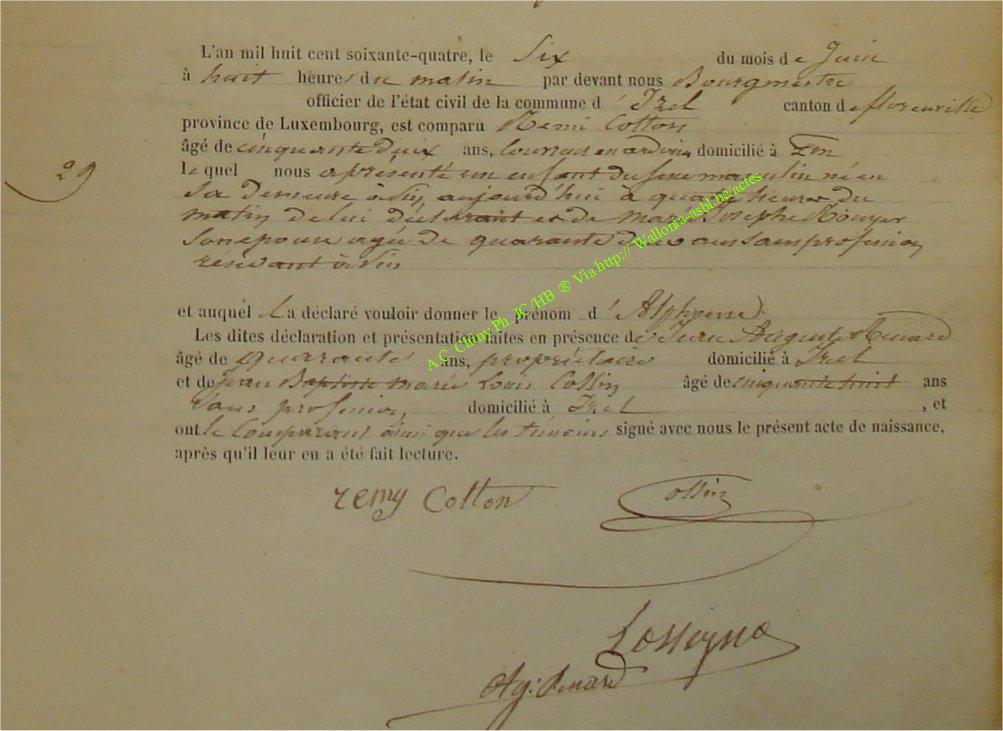 L'an mil huit cent soixante-quatre, le Six du mois de Juin
à huit heures du matin par devant nous Bourgmestre
officier de l'état civil de la commune d'Izel canton de florenville
province de Luxembourg, est comparu Remi Cotton
âgé de cinquante ans, domicilié à
29
le quel nous a présenté un enfant du sexe masculin né en
sa demeure à aujourd'hui à quatre heures du
matin de lui déclarant et de Marie Josephe Rouyer
son épouse agée de quarante ans sans profession
résidant à
et auquel il a déclaré vouloir donner le prénom d'Alphonse
Les dites déclaration et présentation faites en présence de Jean August Renard
âgé de quarante ans, propriétaire domicilié à Izel
et de jean Baptiste marie Louis Collin âgé de cinquante huit ans
Sans profession, domicilié à Izel , et
ont le Comparant ainsi que les témoins signé avec nous le présent acte de naissance,
après qu'il leur en a été fait lecture.
remy Cotton Collin
Ag: Renard
A.C. Chiny Ph. JC/HB ® Via http://Wallonia-asbl.be/actes